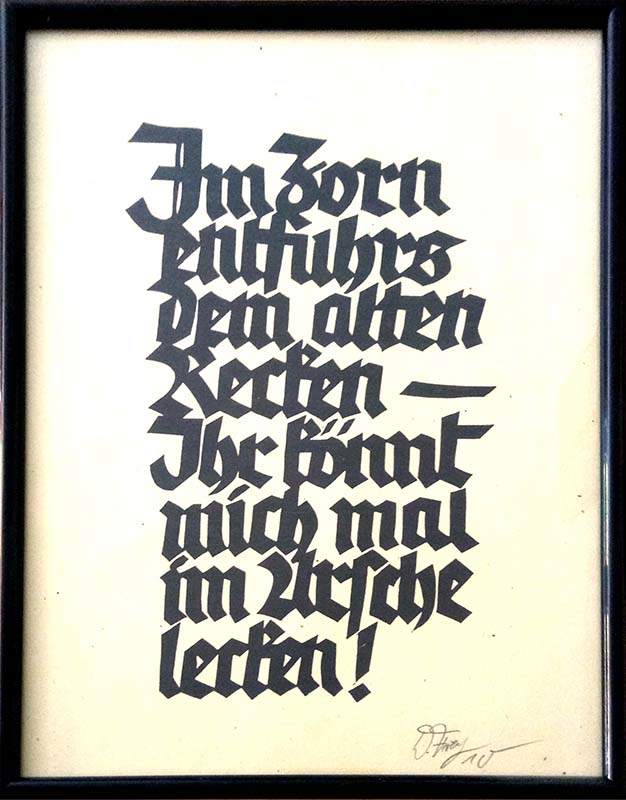 Im Zorn
entfuhrs
dem alten
Recken —
Ihr könnt
mich mal
im Arſche
lecken!